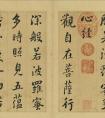 心經
觀自在菩薩行
深般若波羅蜜
多時照見五蘊